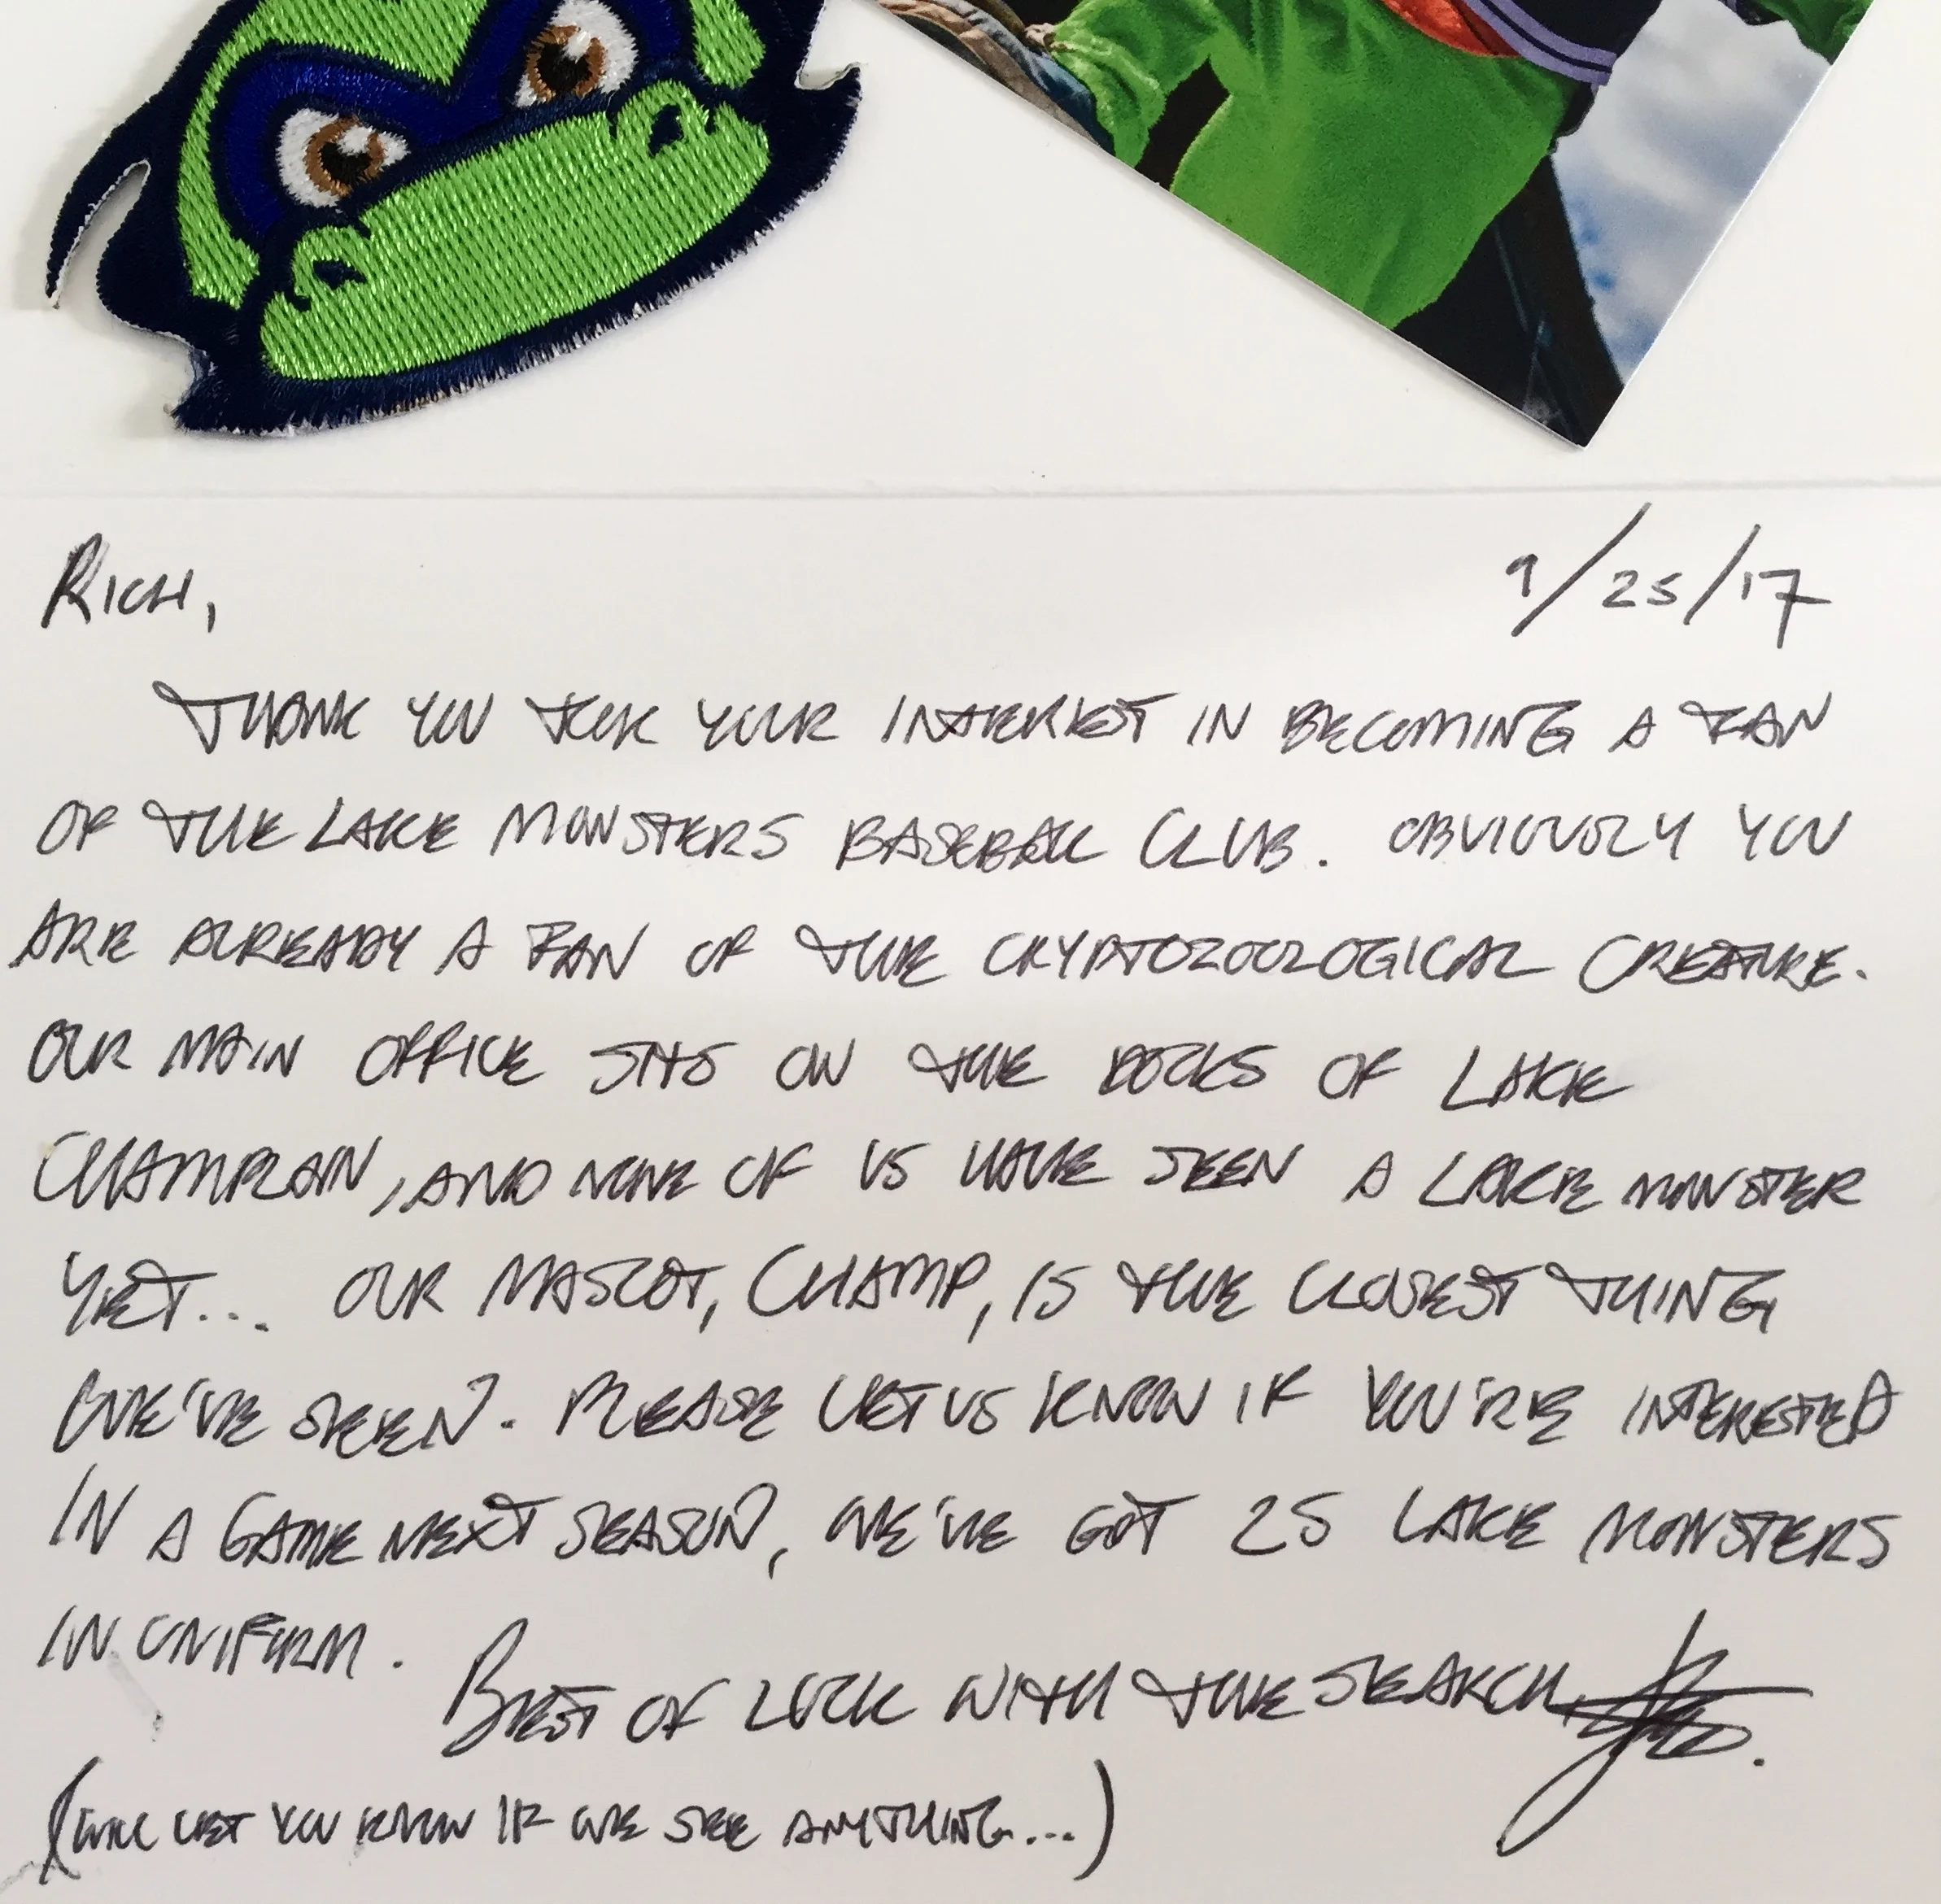 RICH,
9/25/17
THANK YOU FOR YOUR INTEREST IN BECOMING A FAN
OF THE LAKE MONSTERS BASEBALL CLUB. OBVIOUSLY YOU
ARE ALREADY A FAN OF THE CRYPTOZOOLOGICAL CREATURE.
OUR MAIN OFFICE SITS ON THE DOCKS OF LAKE
CHAMPLAIN, AND NONE OF US HAVE SEEN A LAKE MONSTER
YET... OUR MASCOT, CHAMP, IS THE CLOSEST THING
WE'VE SEEN. PLEASE LET US KNOW IF YOU'RE INTERESTED
IN A GAME NEXT SEASON, WE'VE GOT 25 LAKE MONSTERS
IN UNIFORM.
BEST OF LUCK WITH THE SEARCH,
(WILL LET YOU KNOW IF WE SEE ANYTHING...)